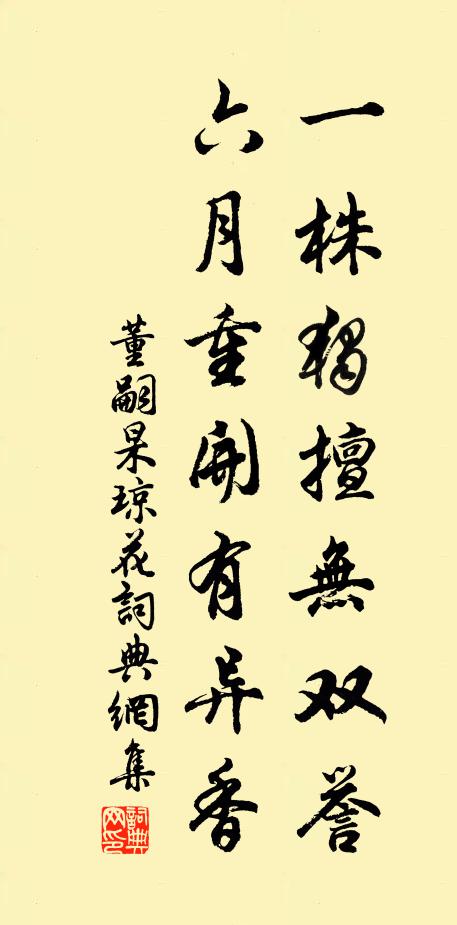 一株獨擅無双誉
六月重開有异香
董嗣杲琼花詞典網集
詞典網印